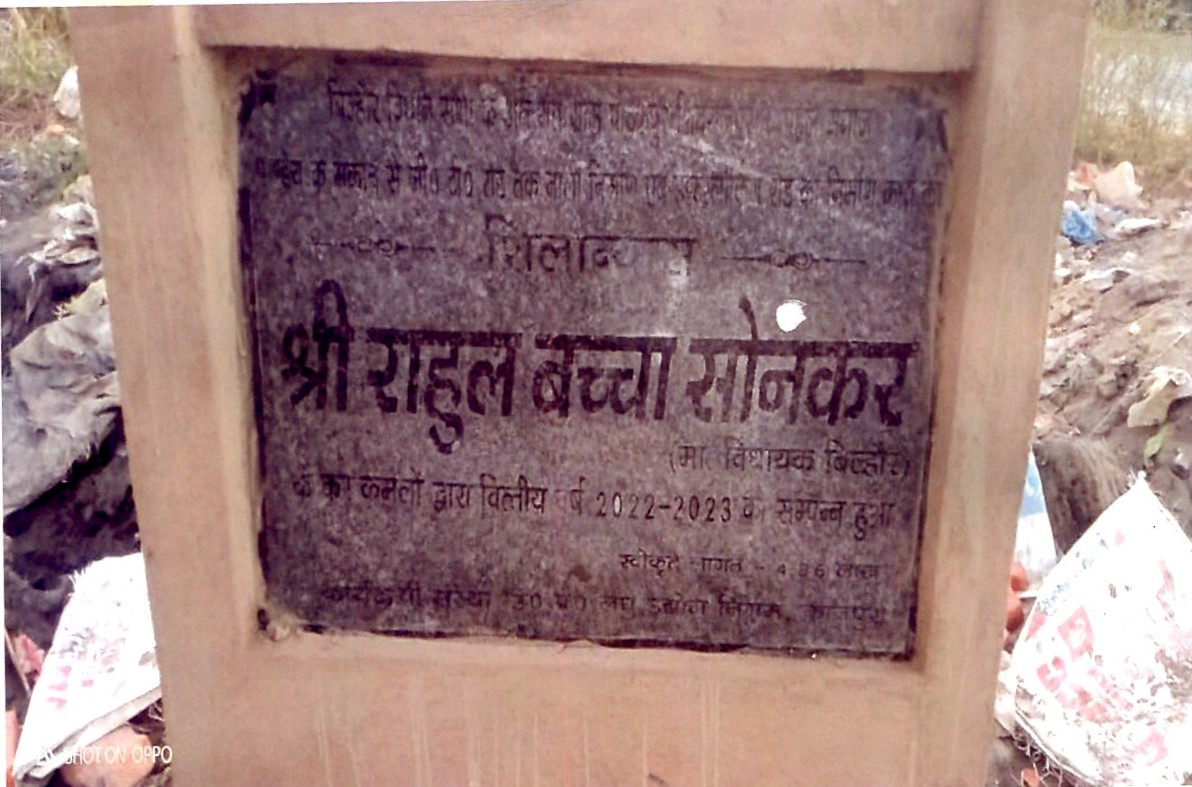 बिल्हौर विधान सभा के
से जी० टी० रोड तक नाला निर्माण एवं इण्टरलॉकिंग रोड का निर्माण कार्य का
शिलान्यास
श्री राहुल बच्चा सोनकर
(मा० विधायक बिल्हौर)
के कर कमलों द्वारा वित्तीय वर्ष 2022-2023 को सम्पन्न हुआ
स्वीकृत लागत - 4.86 लाख
कार्यदायी संस्था उ0 प्र0 लघु उद्योग निगम, कानपुर
SHOT ON OPPO